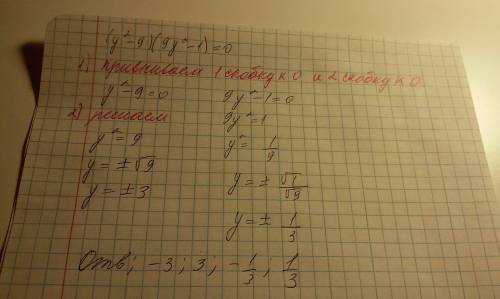 (y²-9)(9y²-1)=0
1) привниваем 1 скобку к 0 и 2 скобку к 0
y²-9=0 9y²-1=0
2) решаем 9y²=1
y²=9 y²= 1/9
y=±√9 y=± √1/√9
y=±3 y=± 1/3
Отв; -3; 3; -1/3; 1/3